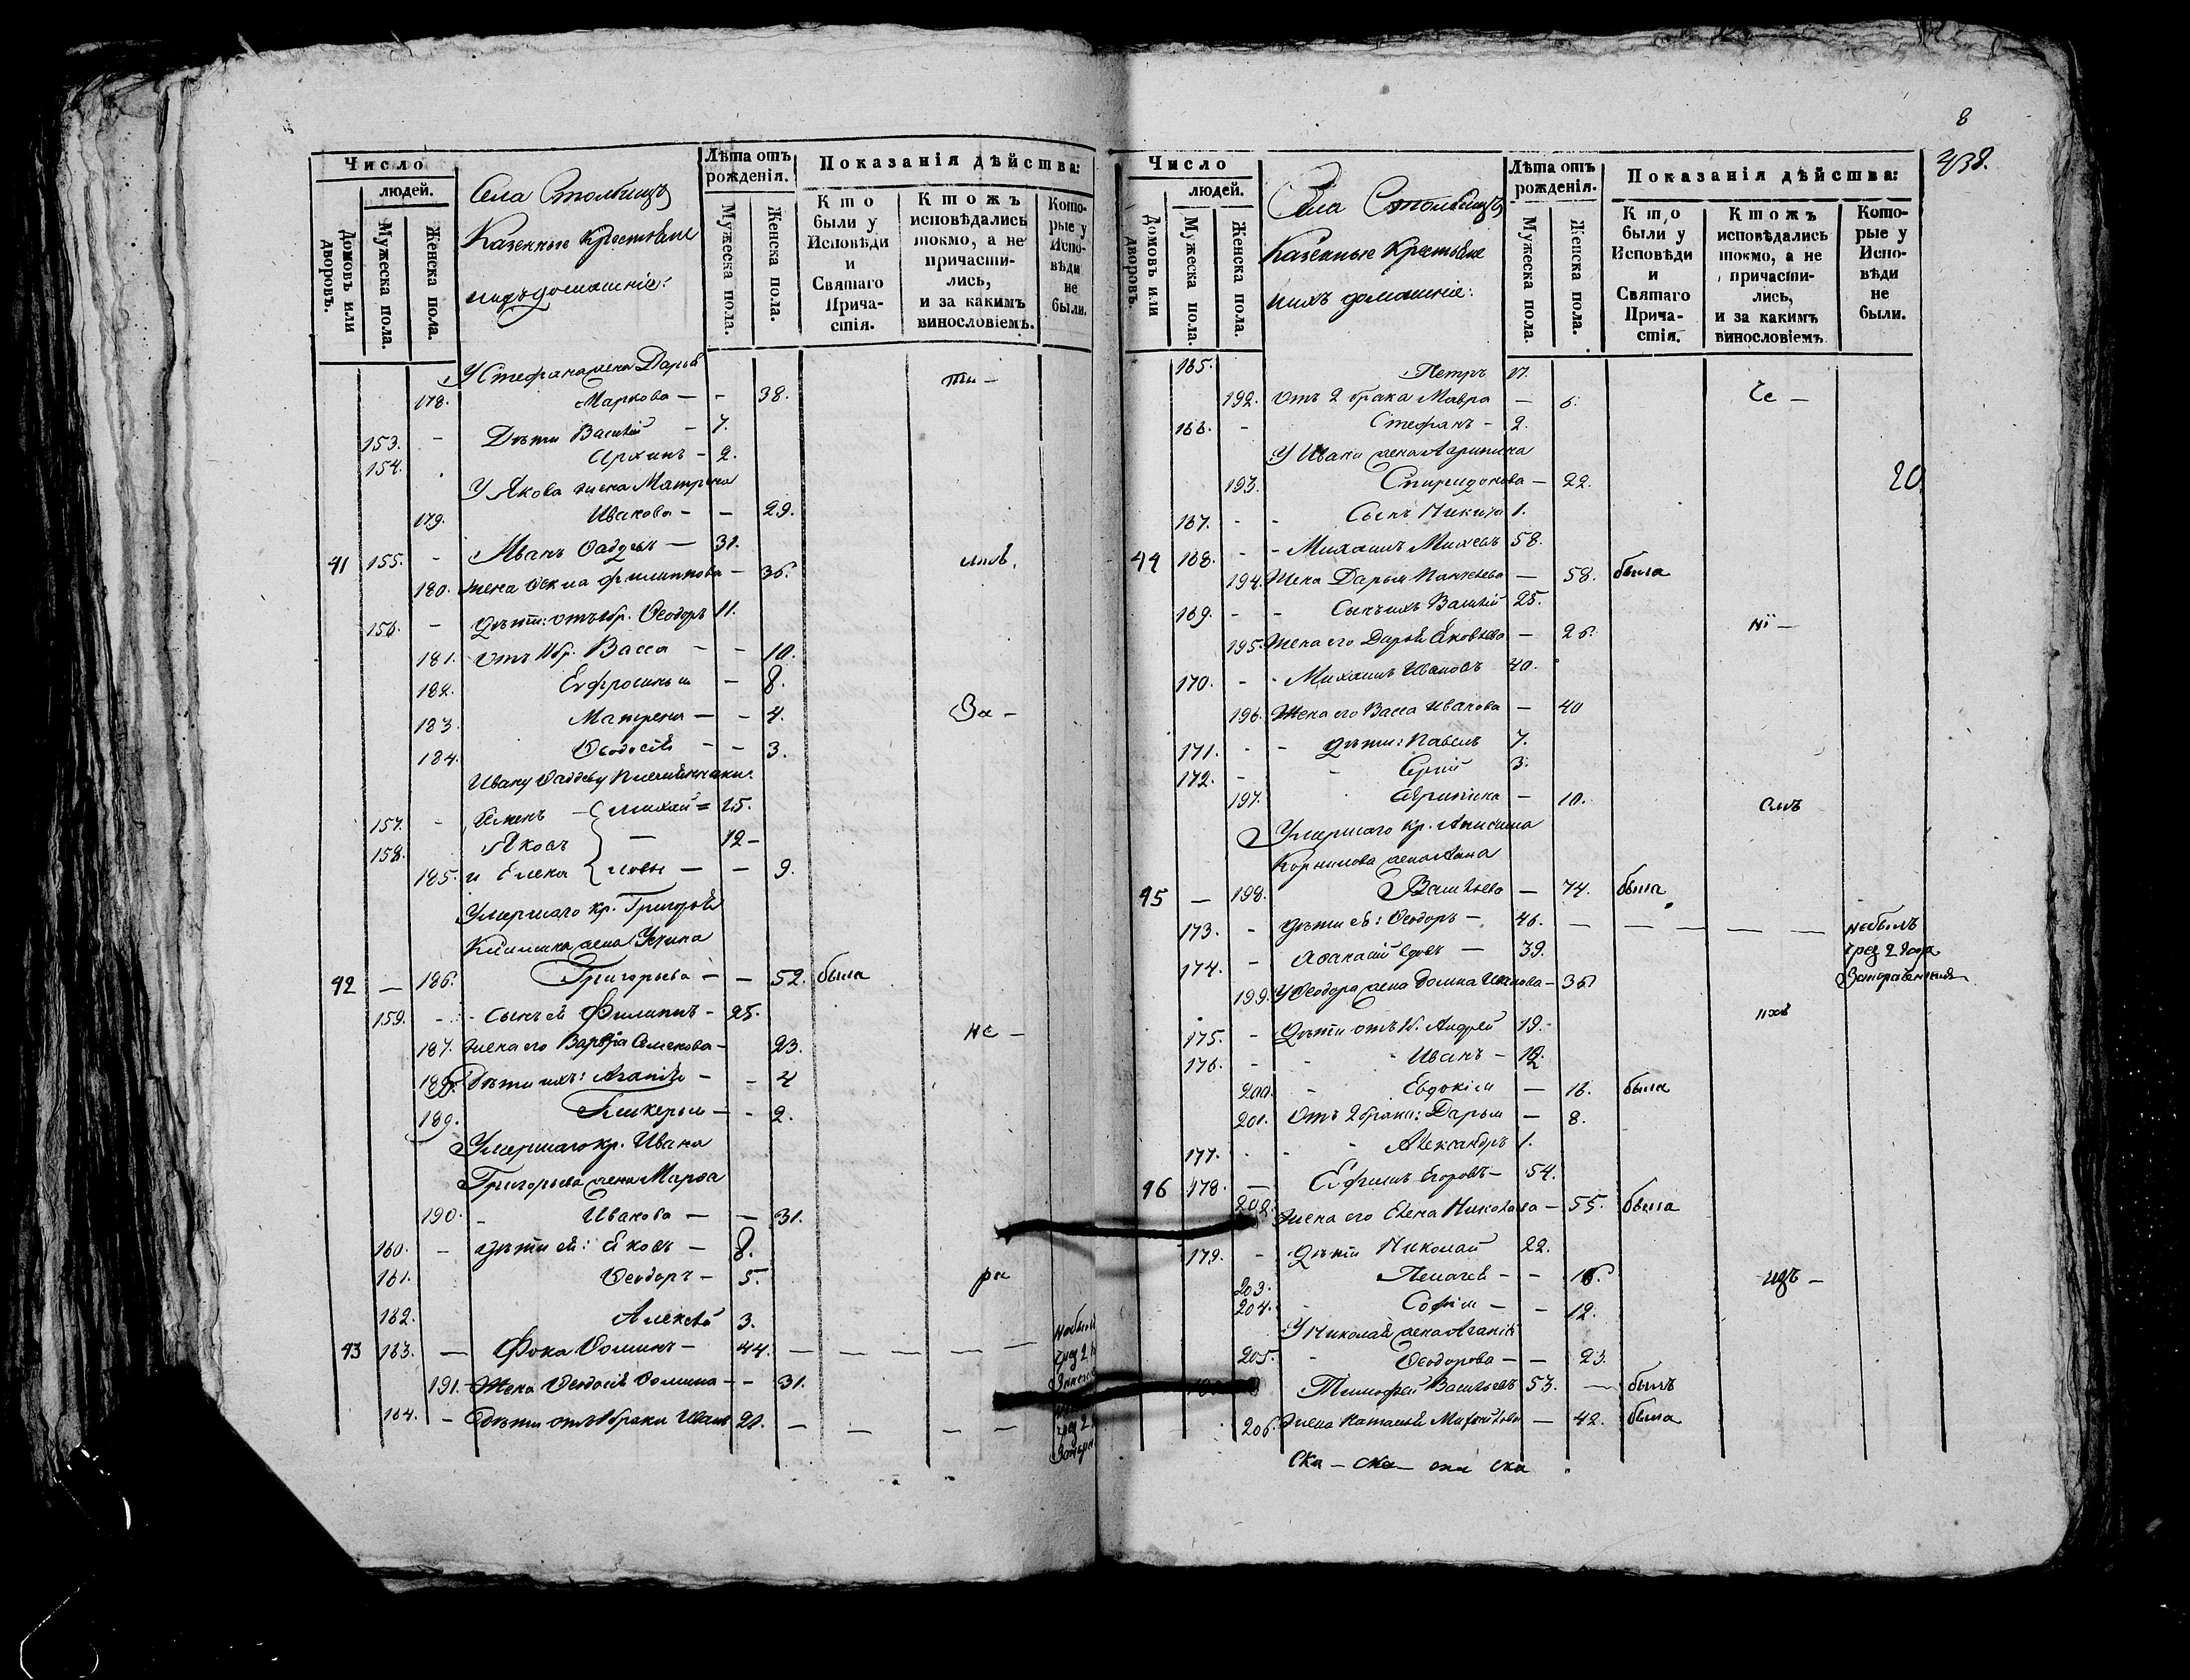 Число
людей.
Домовъ или дворовъ.
Мужеска пола.
Женска пола.
Села Столбищъ
Казенные крестьяне
и ихъ домашніе:
Лѣта отъ рожденія.
Мужеска пола.
Женска пола.
Показанія дѣйства:
Кто были у Исповѣди и Святаго Причастія.
Ктожъ исповѣдались токмо, а не причастились, и за какимъ винословіемъ.
Которые у Исповѣди не были.
У Стефана жена Дарья ти-
178. Маркова - - 38.
153. - Дѣти Василій - 7.
154. Архипъ - 2.
У Якова жена Матрена
179. Иванова - - 29.
91 155. - Иванъ Ѳаддеевъ - 31.
180. жена филиппова - 36.
156. - дѣти: отъ 1 бр. Ѳеодоръ 11.
181. отъ 11 бр. Васса - - 10.
182. Евфросинья - 8.
183. Матрена - - 4. За -
184. Ѳеодосія - - 3.
Ивану Ѳаддееву
157. - Михай= 15.
158. Яковъ - 12-
185. и Елена ловы - - 9.
Умершаго кр. Григорья
жена
92 - 186. Григорьева - - 52. была
159. - - сынъ ея Филиппъ - 25.
187. жена его Варвара Семенова - 23. не -
188. Дѣти ихъ: Агапія - - 4
189. Гликерья - - 2.
Умершаго кр. Ивана
Григорьева жена Марѳа
190. - Иванова - - 31.
160. - дѣти ея: Яковъ - 8.
161. Ѳеодоръ - 5. ра
162. Алексѣй 3.
93 163. - Фока Ѳоминъ - 44. - - - - -
191. Жена Ѳеодосія Ѳомина - - 31.
164. - Дѣти отъ 1 брака Иванъ 20. - - - -
8
438.
Число
людей.
Домовъ или дворовъ.
Мужеска пола.
Женска пола.
Села Столбищъ
Казенные Крестьяне
и ихъ домашніе:
Лѣта отъ рожденія.
Мужеска пола.
Женска пола.
Показанія дѣйства:
Кто были у Исповѣди и Святаго Причастія.
Ктожъ исповѣдались токмо, а не причастились, и за какимъ винословіемъ.
Которые у Исповѣди не были.
165. Петръ 17.
192. Отъ 2 брака Мавра - 6. Се -
166. - Стефанъ - 2.
У Ивана жена Агрипина
193. Спиридонова - 22. 20
167. - - Сынъ Никита 1.
94 168. - - Михаилъ 58.
194. Жена Дарья - 58. была
169. - - Сынъ ихъ Василій 25.
195. Жена его Дарья Яковлева - 26. ні -
170. - - Михаилъ Ивановъ 40.
196. Жена его Васса Иванова - 40
171. - - дѣти: Павелъ 7.
172. - - Сергій 3.
197. Агрипина - 10. емъ
Умершаго кр. Анисима
Корнилова жена Анна
95 - 198. Васильева - 74. была
173. - дѣти ея: Ѳеодоръ - 46. - - - - - небылъ
174. - Аѳанасій вдовъ - 39. чрез 2 года
199. У Ѳеодора жена Домна Иванова - 36
175. - Дѣти отъ 1 б. Андрей 19.- ихъ
176. - - Иванъ - 12.
200. - Евдокія - 16. была
201. отъ 2 брака: Дарья - 8.
177. - - Александръ 1.
96 178. - Ефимъ Егоровъ - 54.
202. жена его Елена Николаева - 55. была
179. - Дѣти Николай 22.
203. Пелагея - - 16. изъ -
204. - Софія - - 12.
У Николая жена Агапія
205. - Ѳеодорова - - 23.
Тимофей Васильевъ 53. - былъ
206. жена Наталья - 42. была
ска - ска - ска